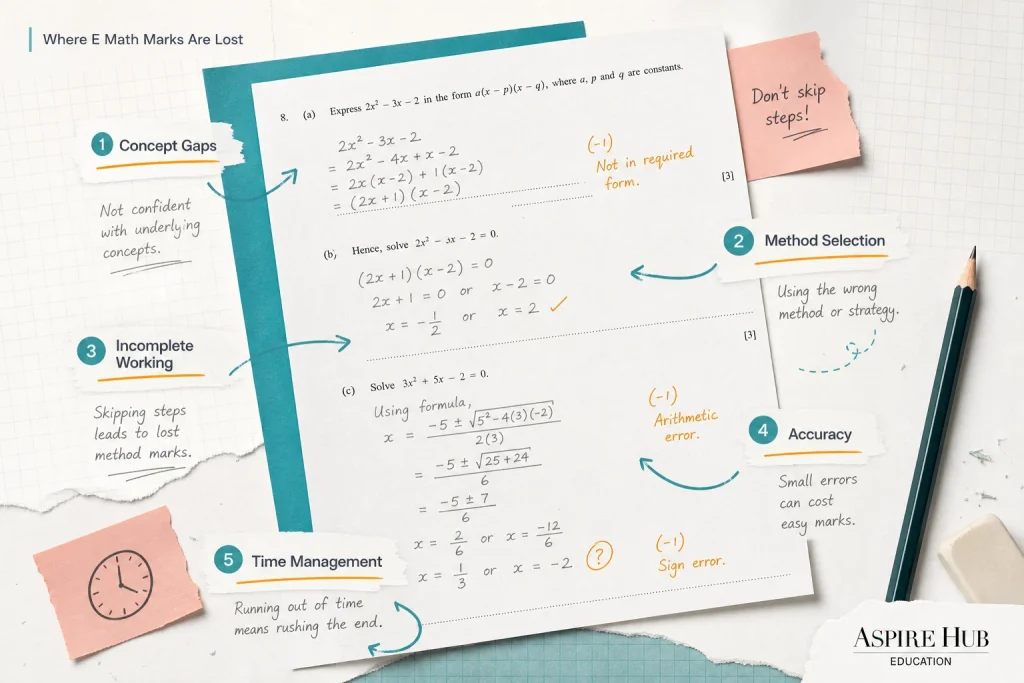 Where E Math Marks Are Lost
8. (a) Express 2x² − 3x − 2 in the form a(x − p)(x − q), where a, p and q are constants.
2x² − 3x − 2
= 2x² − 4x + x − 2
= 2x(x−2) + 1(x−2)
= (2x+1)(x−2)
(−1)
Not in required
form.
[3]
(b) Hence, solve 2x² − 3x − 2 = 0.
(2x+1)(x−2) = 0
2x+1 = 0 or x−2 = 0
x = −1/2 or x = 2 ✓
[3]
(c) Solve 3x² + 5x − 2 = 0.
Using formula,
x = (−5 ± √(5²−4(3)(−2)))/2(3)
= (−5 ± √(25+24))/6
= (−5 ± 7)/6
x = 2/6 or x = −12/6
x = 1/3 or x = −2 ?
(−1)
Arithmetic
error.
(−1)
Sign error.
Don't skip
steps!
1 Concept Gaps
Not confident
with underlying
concepts.
2 Method Selection
Using the wrong
method or strategy.
3 Incomplete
Working
Skipping steps
leads to lost
method marks.
4 Accuracy
Small errors
can cost
easy marks.
5 Time Management
Running out of time
means rushing the end.
ASPIRE HUB
EDUCATION